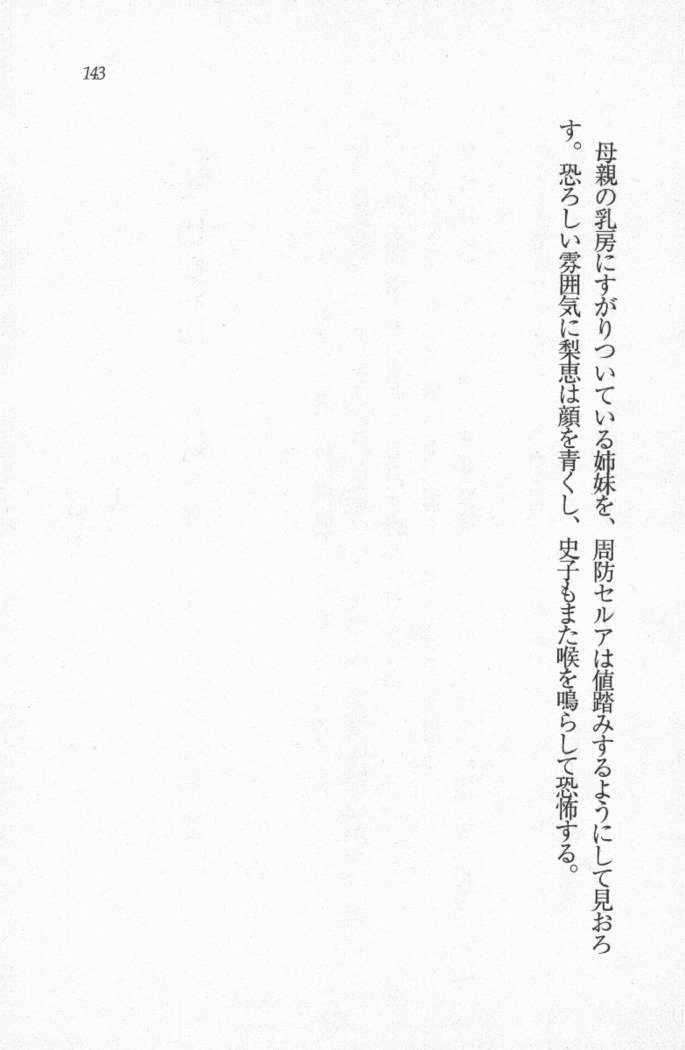 143
母親の乳房にすがりついている姉妹を、周防セルアは値踏みするようにして見おろ
す。恐ろしい雰囲気に梨恵は顔を青くし、史子もまた喉を鳴らして恐怖する。